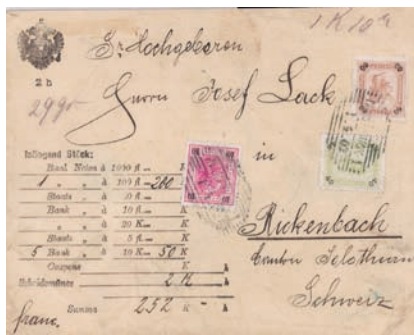 1 K 10 h
Sr Hochgeboren
2 h
29 gr
Herrn Josef Lack
Inliegend Stück:
Bank Noten à 1000 fl. = K
1 „ „ à 100 fl. = 200 K
Staats „ à fl. = K
Bank „ à 10 fl. = K
„ „ à 20 K = K
Staats „ à 5 fl. = K
5 Bank „ à 10 K = 50 K
Coupons K
Scheidemünze 2 K h
Summe 252 K - h
in
Rickenbach
Canton Solothurn
Schweiz
franco.